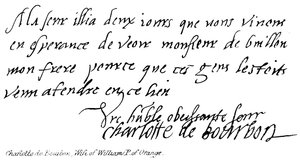 A la seur illia deux iours que nous vinem
en esperance de veoir monsieur de buillon
mon frere pource que ces gens les
venu atendre en ce lien
Vre hũble obeissante seur
Charlotte de Bourbon
Charlotte de Bourbon, Wife of William P. of Orange.